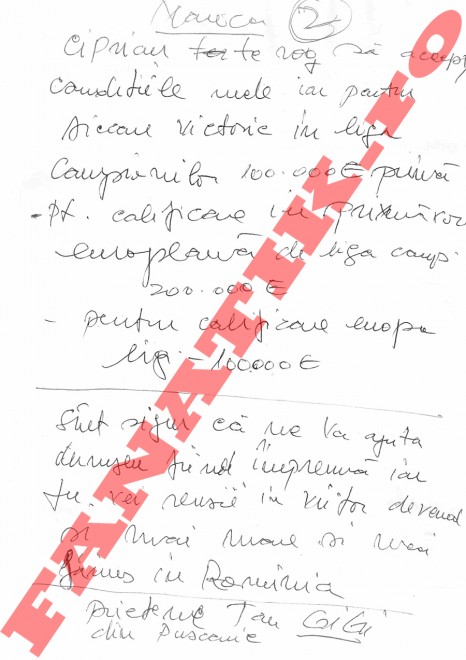 2
Ciprian te rog să accepți
condițiile mele iar pentru
fiecare victorie in liga
Campionilor 100.000 € primă
- pt. calificare in primăvara
europeană de liga camp.
200.000 €
- pentru calificare europa
lig - 100000 €
Sînt sigur că ne va ajuta
dumnezeu fiind împreună iar
tu vei reuși in viitor devenind
și mai mare și mai
in România
prietene Tau GiGi
din
FANATIK.ro